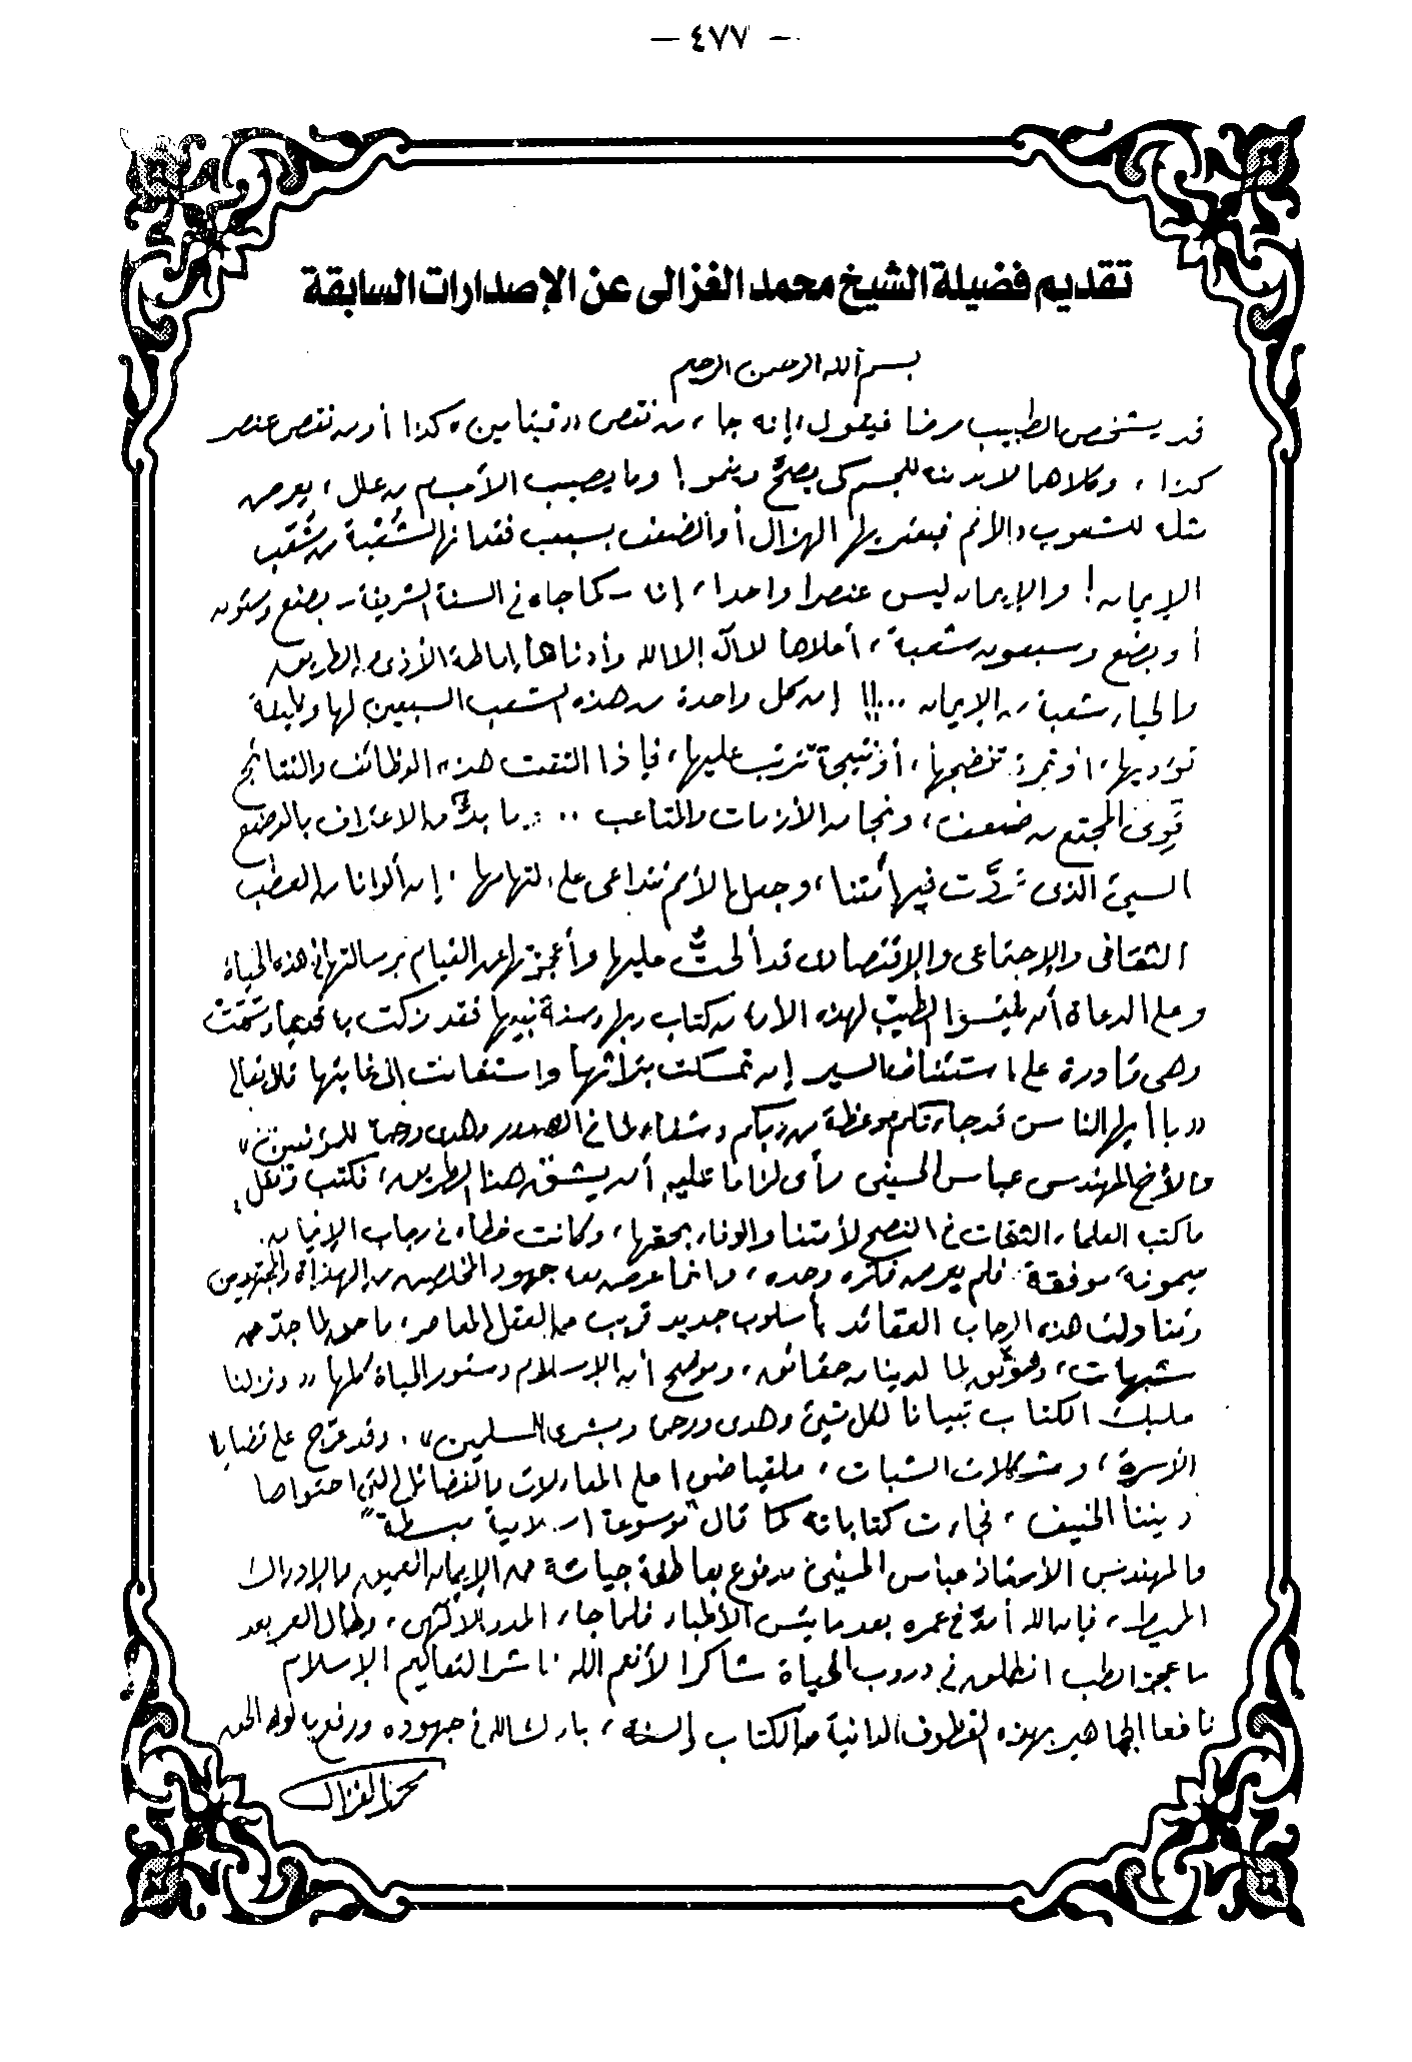 — ٤٧٧ —
تقديم فضيلة الشيخ محمد الغزالى عن الإصدارات السابقة
بسم الله الرحمن الرحيم
قد يشخص الطبيب مرضا فيقول، إنه جاء من نقص «فيتامين» كذا أو من نقص عنصر
كذا، وكلاهما لابد منه للجسم كى يصحَّ وينمو! وما يصيب الأجسام من علل، يعرض
مثله للشعوب والأمم فيعتريها الهزال أو الضعف بسبب فقدانها لشُعْبة من شُعَب
الإيمان! والإيمان ليس عنصرا واحدا، إنه - كما جاء فى السنة الشريفة - بضع وستون
أو بضع وسبعون شعبة، أعلاها لا إله إلا الله وأدناها إماطة الأذى عن الطريق
والحياء شعبة من الإيمان ...!! إن كل واحدة من هذه الشعب السبعين لها وظيفة
تؤديها، أو ثمرة تنضجها، أو نتيجة تترتب عليها، فإذا التقت هذه الوظائف والنتائج
قَوِىَ المجتمع من ضعف، ونجا من الأزمات والمتاعب .. ما بدٌّ من الاعتراف بالوضع
السيئ الذى تردَّت فيه أمتنا، وجعل الأمم تتداعى على التهامها. إن ألوانا من العطب
الثقافى والاجتماعى والاقتصادى قد ألحتْ عليها وأعجزتها عن القيام برسالتها فى هذه الحياة
وعلى الدعاة أن يلتمسوا الطِبّ لهذه الأمة من كتاب ربها وسنة نبيها فقد زكت بها قديما وسَمَتْ
وهى قادرة على استئناف السير إن تمسكت بتراثها واستفاقت إلى غايتها قال تعالى
«يا أيها الناس قد جاءتكم موعظة من ربكم وشفاء لما فى الصدور وهدى ورحمة للمؤمنين»
والأخ المهندس عباس الحسينى رأى لزاما عليه أن يشق هذا الطريق، فكتب ونقل
ما كتب العلماء الثقات فى النصح لأمتنا والوفاء بحقها، وكانت خطاه فى رحاب الإيمان
ميمونة موفقة. فلم يعرض فكره وحده، وإنما عرض معه جهود المخلصين من الهداة والمجتهدين
وتناولت هذه الرحاب العقائد بأسلوب جديد قريب من العقل المعاصر، ماحق لما جدّ من
شبهات، وموثّق لما لدينا من حقائق، وموضح أن الإسلام دستور الحياة كلها «ونزلنا
عليك الكتاب تبيانا لكل شئ وهدى ورحمة وبشرى للمسلمين». وقد عرّج على قضايا
الأسرة، ومشكلات الشباب، ملقيا ضوءا على المعاملات والفضائل التى احتواها
ديننا الحنيف، فجاءت كتاباته كما قال "موسوعة إسلامية مبسطة"
والمهندس الأستاذ عباس الحسينى مدفوع بعاطفة جياشة من الإيمان العميق والإدراك
المحيط، فإن الله أمدّ فى عمره بعد ما يئس الأطباء فلما جاء المدد الإلهى، وطال العمر بعد
ما عجز الطب انطلق فى دروب الحياة شاكرا لأنعم الله ناشرا لتعاليم الإسلام
نافعا الجماهير بهذه القطوف الدانية من الكتاب والسنة، بارك الله فى جهوده ورفع به لواء الحق
محمد الغزالى